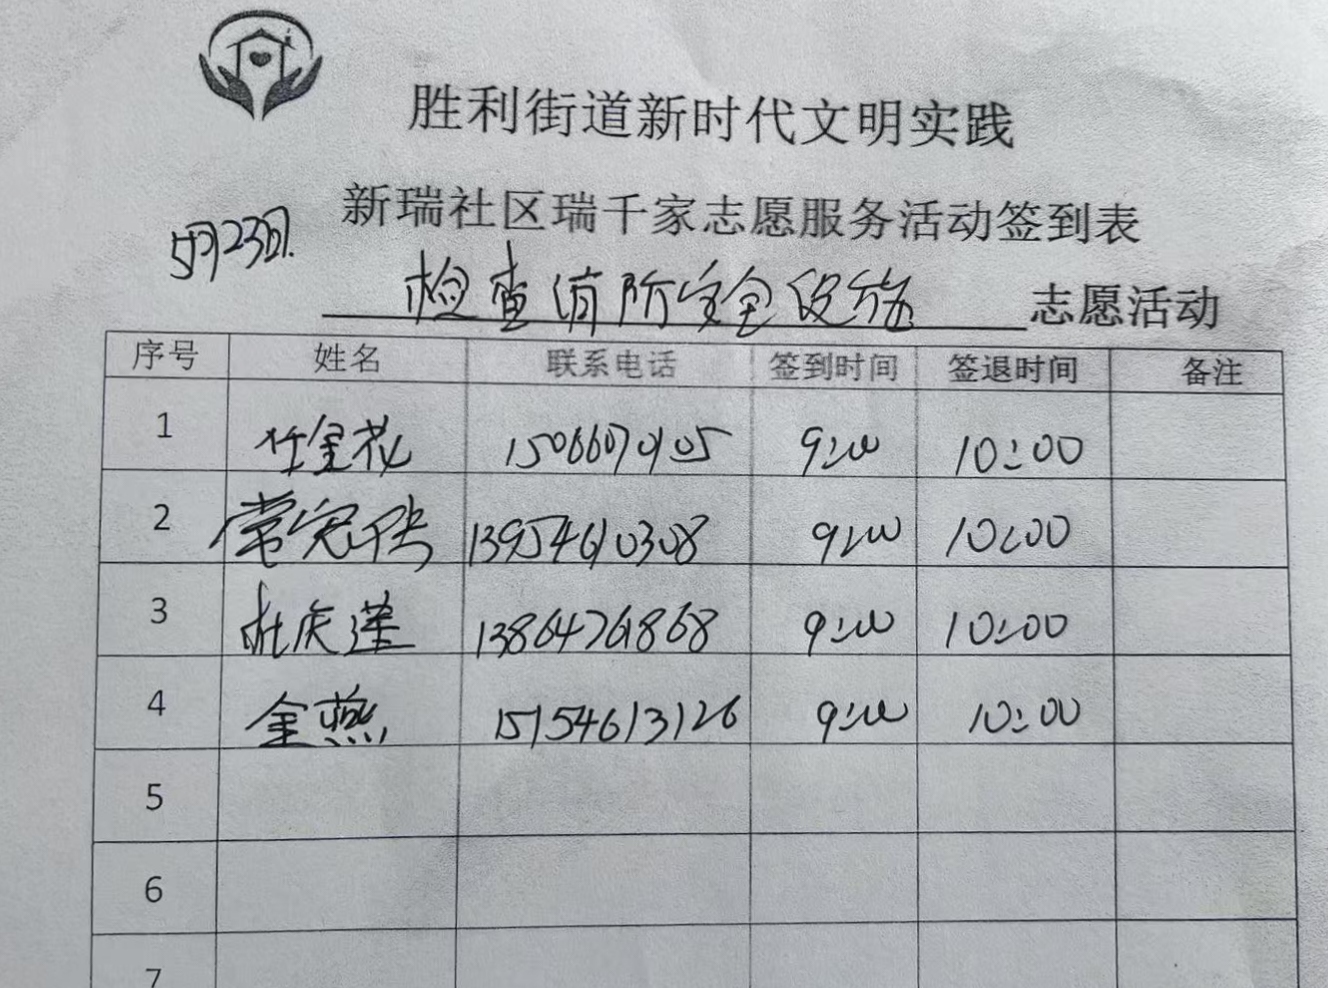 胜利街道新时代文明实践
新瑞社区瑞千家志愿服务活动签到表
5月23日.
检查消防安全设施 志愿活动
序号 姓名 联系电话 签到时间 签退时间 备注
1 任金花 15066070105 9:00 10:00
2 13954610308 9:00 10:00
3 13864761868 9:00 10:00
4 金燕 15154613126 9:00 10:00
5
6
7